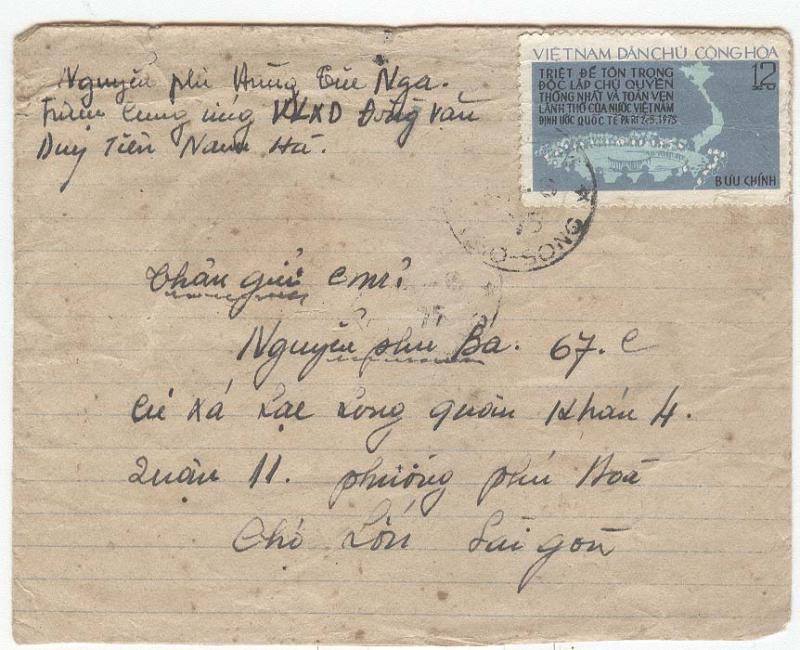 Nguyễn phú Hùng Tức Nga.
Trạm Cung ứng VLXD Đồng Văn
Duy Tiên Nam Hà.
VIỆT NAM DÂN CHỦ CỘNG HÒA
12
TRIỆT ĐỂ TÔN TRỌNG
ĐỘC LẬP CHỦ QUYỀN
THỐNG NHẤT VÀ TOÀN VẸN
LÃNH THỔ CỦA NƯỚC VIỆT NAM
ĐỊNH ƯỚC QUỐC TẾ PARI 2-3.1973
BƯU CHÍNH
Thân gửi
Nguyễn phú Bá. 67. C
Cư Xá Lạc Long quân Khán 4.
Quận 11. phường phú Hoà
Chợ Lớn Sài gòn